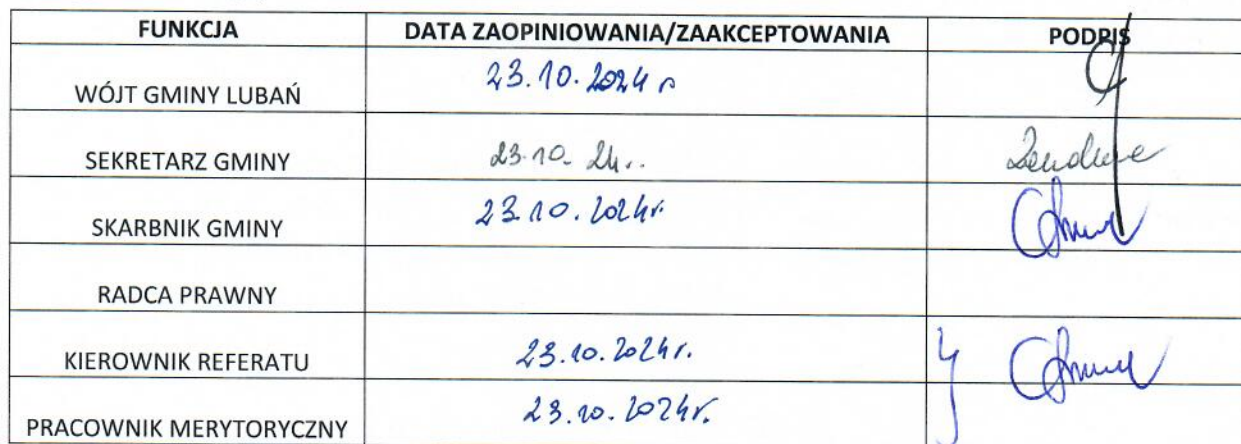 FUNKCJA DATA ZAOPINIOWANIA/ZAAKCEPTOWANIA PODPIS
WÓJT GMINY LUBAŃ 23.10.2024 r
SEKRETARZ GMINY 23.10.24r.
SKARBNIK GMINY 23.10.2024r.
RADCA PRAWNY
KIEROWNIK REFERATU 23.10.2024r.
PRACOWNIK MERYTORYCZNY 23.10.2024r.